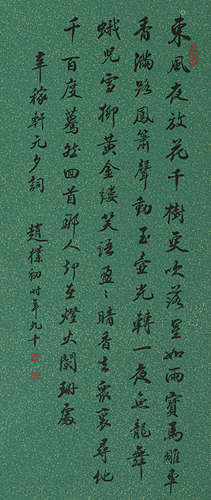 東風夜放花千樹更吹落星如雨寶馬雕車
香滿路鳳簫聲動玉壺光轉一夜魚龍舞
蛾兒雪柳黃金縷笑語盈〻暗香去衆裏尋他
千百度驀然回首那人却在燈火闌珊處
辛稼軒元夕詞
趙樸初時年九十